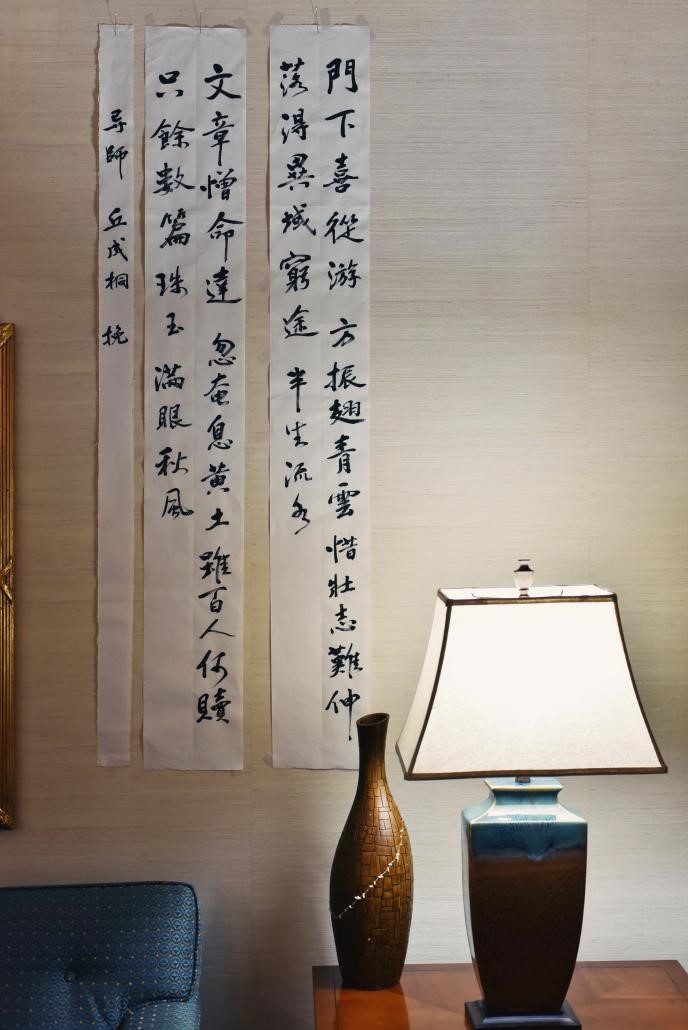 門下喜從游 方振翅青雲 惜壯志難伸
落得異域窮途 半生流水
文章憎命達 忽奄息黄土 雖百人何贖
只餘数篇珠玉 滿眼秋風
导師 丘成桐 挽